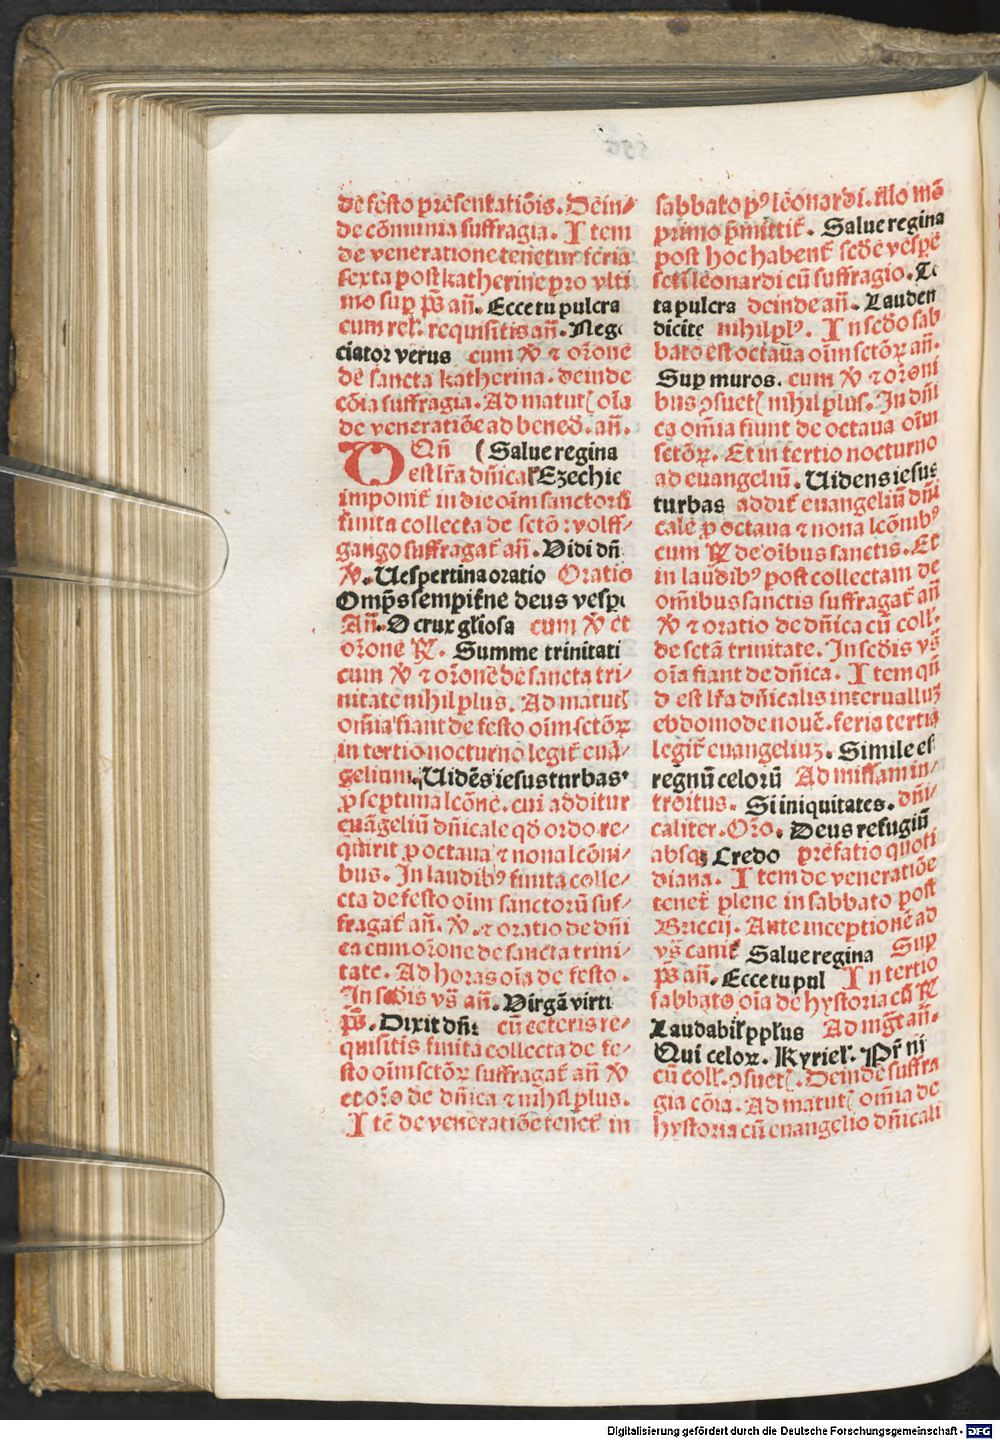 de festo presentatiōis. Dein⸗
de cōmunia suffragia. Item
de veneratione tenetur feria
sexta post katherine pro vlti
mo sup p̄s añ. Ecce tu pulcra
cum rel̄. requisitis añ. Neg
ciator verus cum ℣ ⁊ or̄one
de sancta katherina. deinde
cōia suffragia. Ad matut oīa
de veneratiōe ad bened̄. añ.
QUn̄ Salue regina
est lr̄a dn̄ical Ezechie
imponit̄ in die oīm sanctorū
finita collecta de sctō: volff⸗
gango suffragat̄ añ. Vidi dn̄
℣. Uespertina oratio Oratio
Omp̄s sempit̄ne deus vesp
Añ. O crux gl̄iosa cum ℣ et
or̄one ℟. Summe trinitati
cum ℣ ⁊ or̄one de sancta tri⸗
nitate nihil plus. Ad matut
om̄ia fiant de festo oīm sctōꝝ
in tertio nocturno legit̄ euā⸗
gelium. Uidēs iesus turbas
ꝓ septima lcōne. cui additur
euāgeliū dn̄icale qd̄ ordo re⸗
quirit ꝓ octaua ⁊ nona lcōni⸗
bus. In laudibꝰ finita colle⸗
cta de festo oīm sanctorū suf⸗
fragat̄ añ. ℣. ⁊ oratio de dn̄i
ca cum or̄one de sancta trini⸗
tate. Ad horas oīa de festo.
In scd̄is vs̄ añ. Virgā virtu
p̄s. Dixit dn̄s cū ceteris re⸗
quisitis finita collecta de fe⸗
sto oīm sctōꝝ suffragat̄ añ ℣
et or̄o de dn̄ica ⁊ nihil plus.
Itē de veneratiōe tenet̄ in
sabbato pꝰ leonardi. Alo mō
primo p̄mittit̄. Salue regina
post hoc habent̄ scd̄e vespē
scti leonardi cū suffragio. To
ta pulcra deinde añ. Lauden
dicite nihil plꝰ. In scd̄o sab
bato est octaua oīm sctōꝝ añ.
Sup muros. cum ℣ ⁊ or̄oni
bus ꝯsuet nihil plus. In dn̄i
ca om̄ia fiunt de octaua oīm
sctōꝝ. Et in tertio nocturno
ad euangeliū. Uidens iesus
turbas addit̄ euangeliū dn̄i
cale ꝓ octaua ⁊ nona lcōnibꝰ
cum ℟ de oībus sanctis. Et
in laudibꝰ post collectam de
om̄ibus sanctis suffragat̄ añ
℣ ⁊ oratio de dn̄ica cū coll̄.
de sctā trinitate. In scd̄is vs̄
oīa fiant de dn̄ica. Item qn̄
d est lr̄a dn̄icalis interualluꝫ
ebdomode nouē. feria tertia
legit̄ euangeliuꝫ. Simile est
regnū celorū Ad missam in⸗
troitus. Si iniquitates. dn̄i⸗
caliter. Or̄o. Deus refugiū
absqꝫ Credo prefatio quoti
diana. Item de veneratiōe
tenet̄ plene in sabbato post
Briccij. Ante inceptionē ad
vs̄ canit̄ Salue regina Sup
p̄s añ. Ecce tu pul In tertio
sabbato oīa de hystoria cū ℟
Laudabil̄ pplus Ad mgt̄ añ.
Qui celoꝝ. Kyriel̄. Pr̄ nr̄
cū coll̄. ꝯsuet. Deinde suffra
gia cōia. Ad matut om̄ia de
hystoria cū euangelio dn̄icali
Digitalisierung gefördert durch die Deutsche Forschungsgemeinschaft - DFG